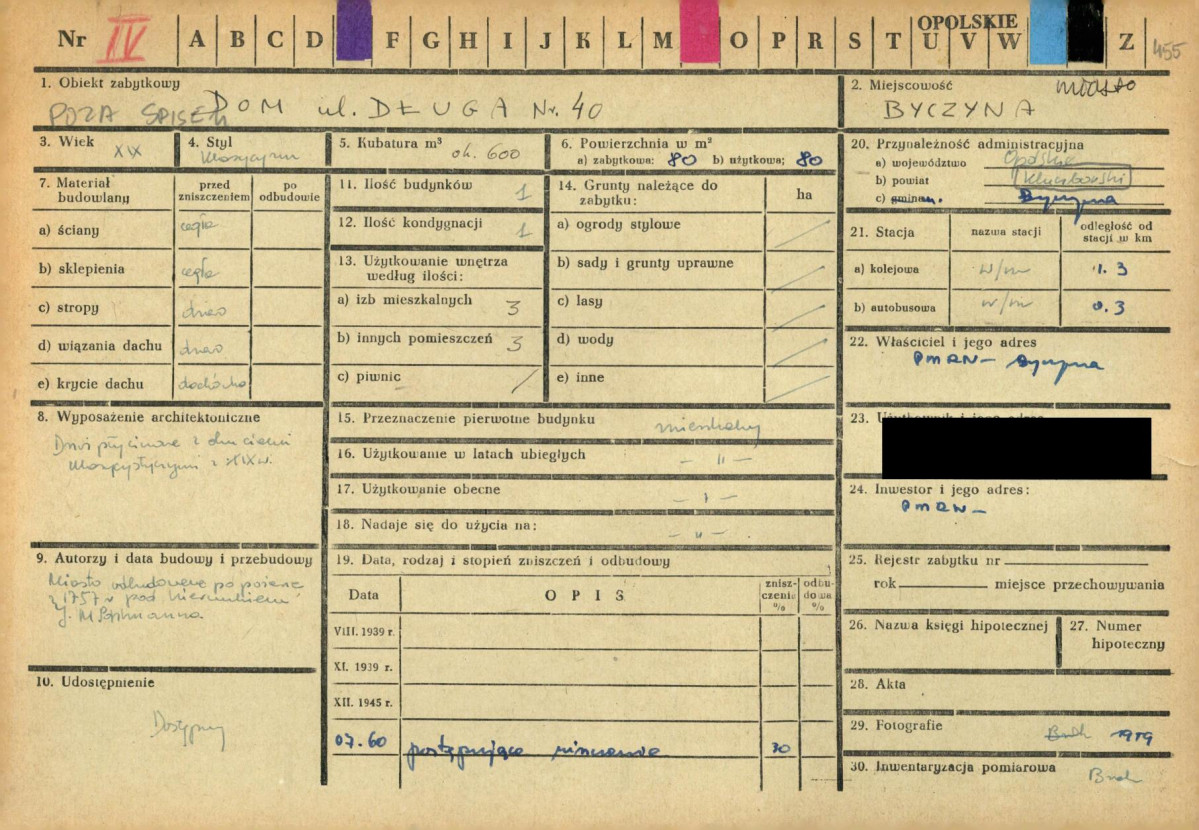 OPOLSKIE
Nr IV A B C D F G H I J K L M O P R S T U V W Z 455
1. Obiekt zabytkowy
POZA SPISEM DOM ul. DŁUGA Nr. 40
2. Miejscowość miasto
BYCZYNA
3. Wiek XIX
4. Styl
5. Kubatura m³ ok. 600
6. Powierzchnia w m²
a) zabytkowa: 80 b) użytkowa: 80
7. Materiał budowlany
przed zniszczeniem
po odbudowie
a) ściany cegła
b) sklepienia cegła
c) stropy drewo
d) wiązania dachu drewo
e) krycie dachu dachówka
8. Wyposażenie architektoniczne
Drzwi płycinowe z
z XIX w.
9. Autorzy i data budowy i przebudowy
Miasto odbudowane po pożarze
z 1757 r pod kierunkiem
J. M.
10. Udostępnienie
Dostępny
11. Ilość budynków 1
12. Ilość kondygnacji 1
13. Użytkowanie wnętrza
według ilości:
a) izb mieszkalnych 3
b) innych pomieszczeń 3
c) piwnic /
14. Grunty należące do
zabytku:
ha
a) ogrody stylowe /
b) sady i grunty uprawne /
c) lasy /
d) wody /
e) inne /
15. Przeznaczenie pierwotne budynku mieszkalny
16. Użytkowanie w latach ubiegłych – „ –
17. Użytkowanie obecne – „ –
18. Nadaje się do użycia na: – „ –
19. Data, rodzaj i stopień zniszczeń i odbudowy
Data
OPIS
znisz-
czenie
%
odbu-
dowa
%
VIII. 1939 r.
XI. 1939 r.
XII. 1945 r.
07.60 postępujące niszczenie 30
20. Przynależność administracyjna
a) województwo Opolskie
b) powiat Kluczborski
c) gmina m. Byczyna
21. Stacja
nazwa stacji
odległość od
stacji w km
a) kolejowa w/m 1.3
b) autobusowa w/m 0.3
22. Właściciel i jego adres
PMRN – Byczyna
23. Użytkownik i jego adres
24. Inwestor i jego adres:
PMRN –
25. Rejestr zabytku nr
rok miejsce przechowywania
26. Nazwa księgi hipotecznej
27. Numer
hipoteczny
28. Akta
29. Fotografie Brak 1979
30. Inwentaryzacja pomiarowa Brak